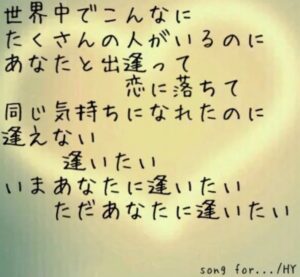 世界中でこんなに
たくさんの人がいるのに
あなたと出逢って
恋に落ちて
同じ気持ちになれたのに
逢えない
逢いたい
いまあなたに逢いたい
ただあなたに逢いたい
song for.../HY